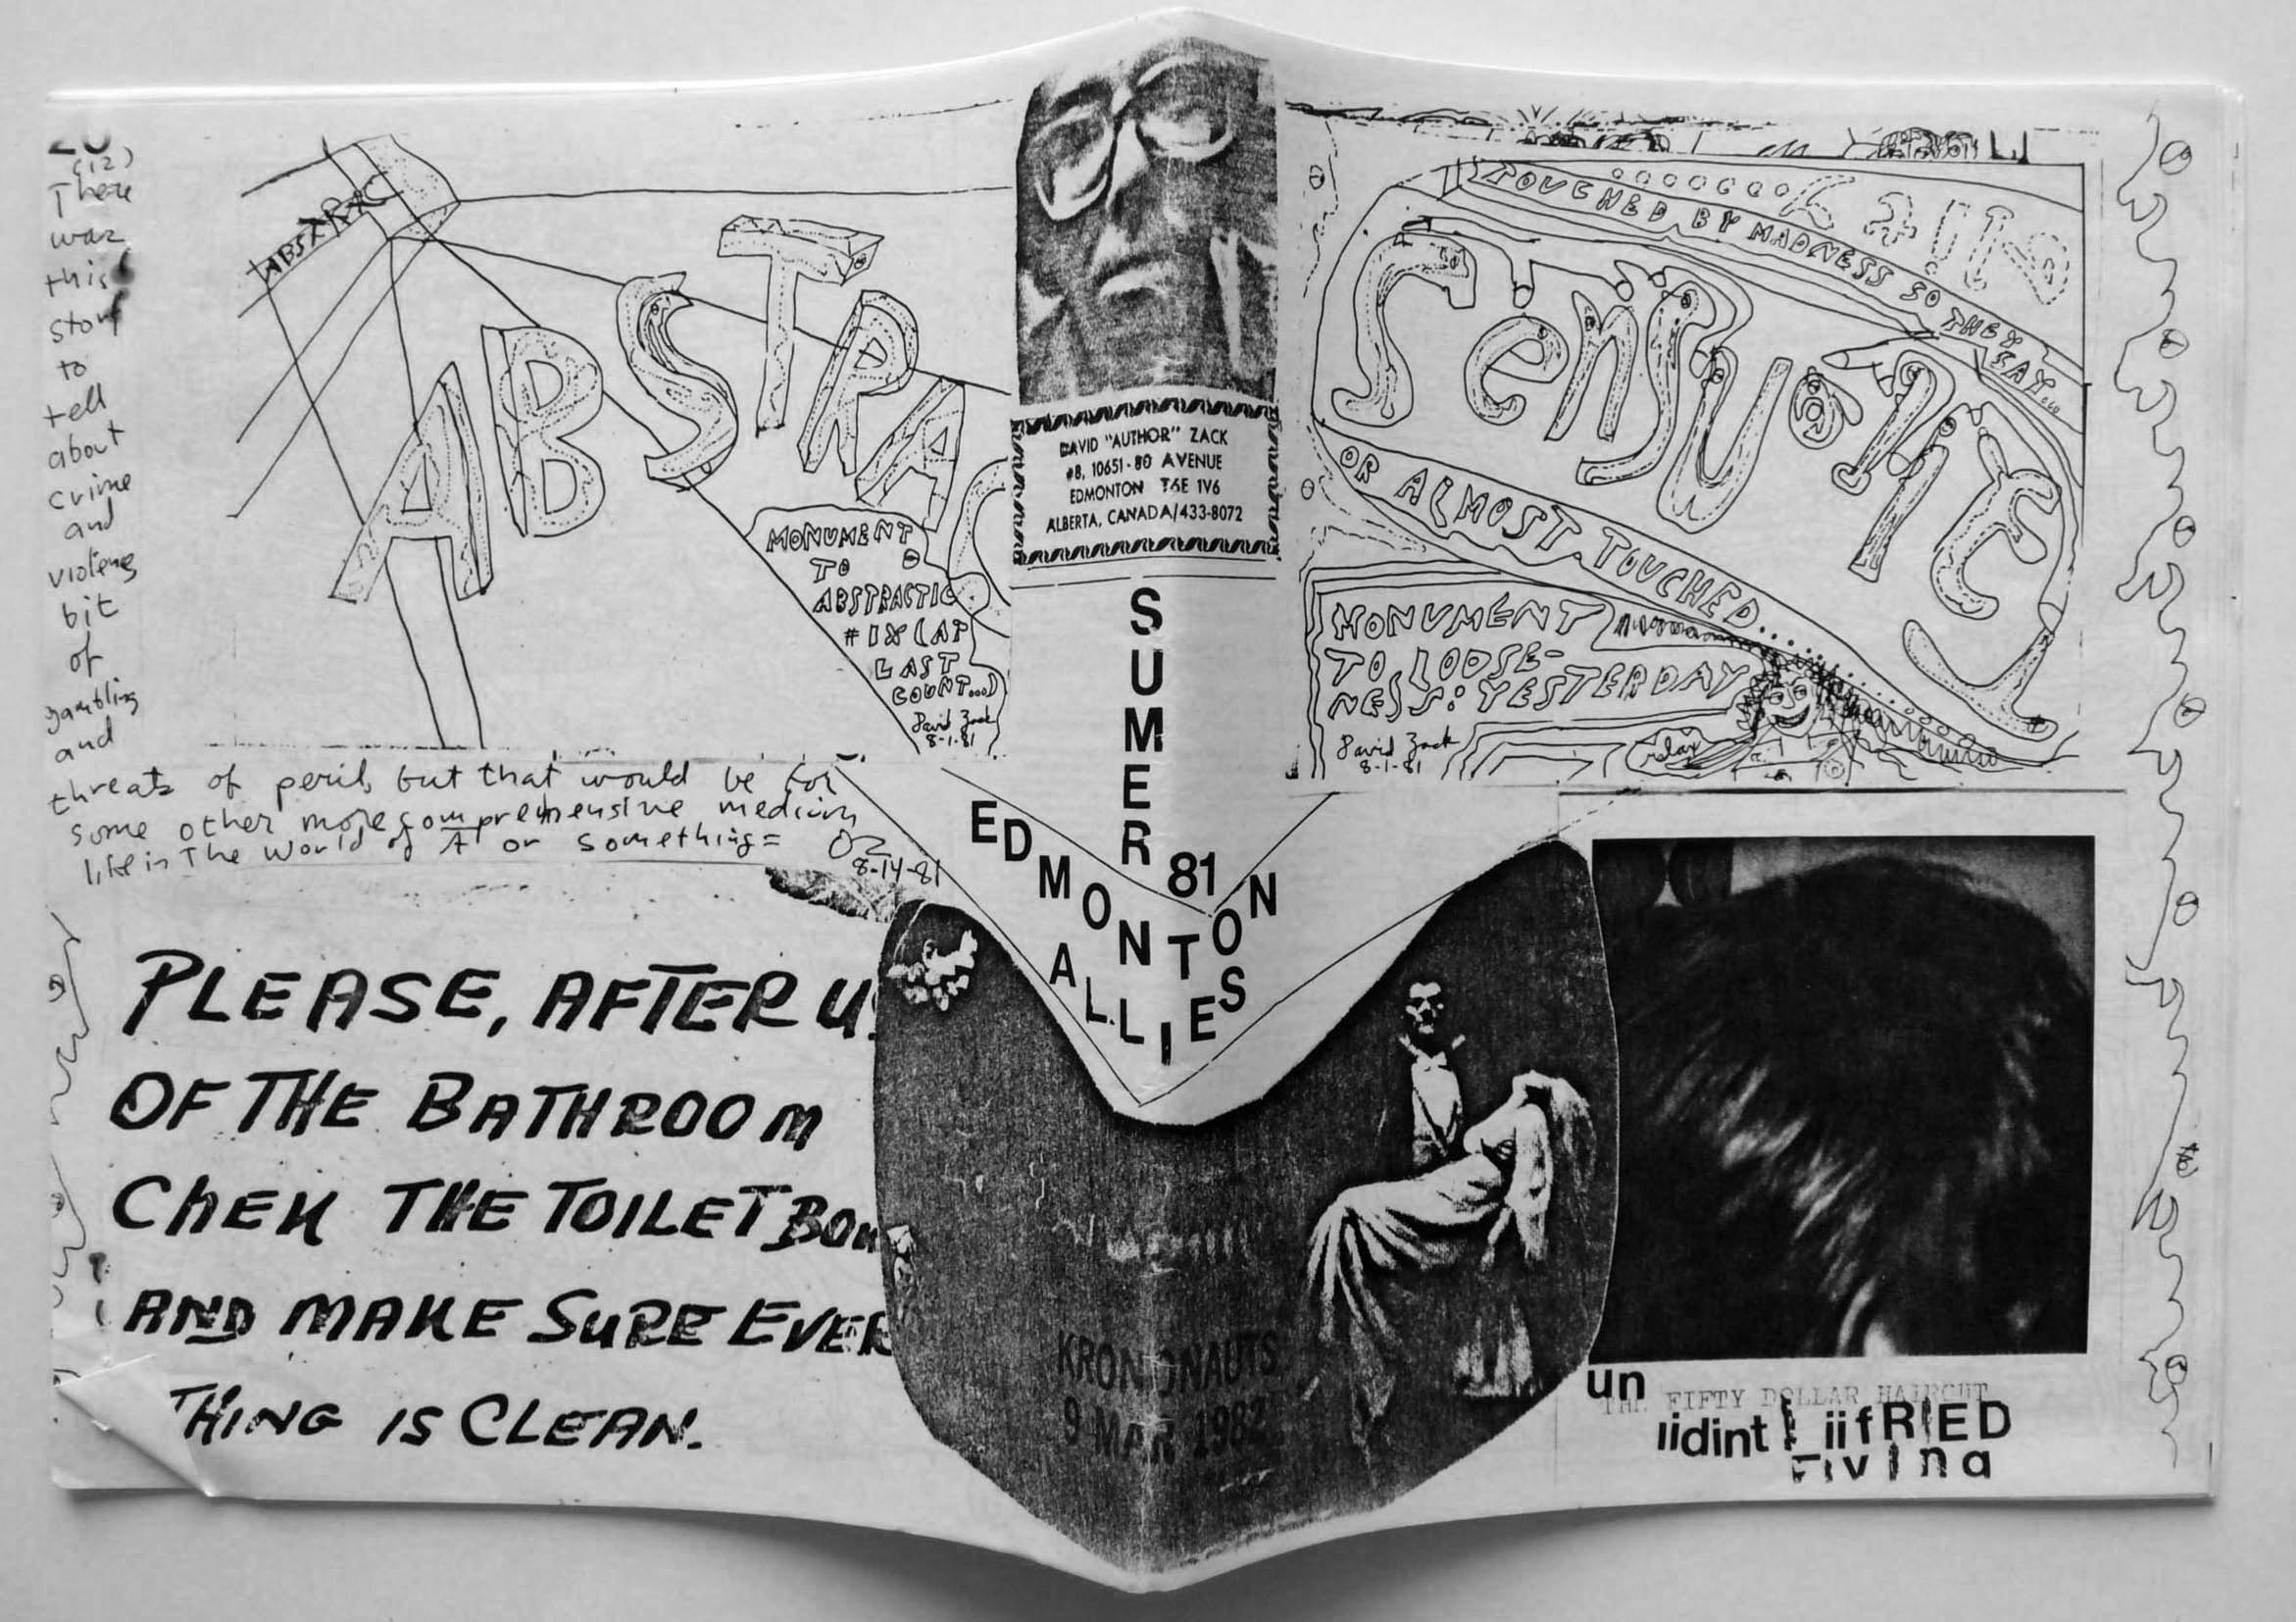 (12)
There
was
this
story
to
tell
about
crime
and
violens
bit
of
gambling
and
threats of peril, but that would be for
some other more comprehensive medium
like in The World of A or something=
8-14-81
ABSTRAC
ABSTRAC
MONUMENT
TO
ABSTRACTIO
#IX (AT
LAST
COUNT...)
David Zack
8-1-81
DAVID "AUTHOR" ZACK
#8, 10651-80 AVENUE
EDMONTON T6E 1V6
ALBERTA, CANADA/433-8072
SUMER 81
EDMONTON
ALLIES
TOUCHED BY MADNESS SO THEY
SAY...
OR ALMOST TOUCHED.....
MONUMENT
TO LOOSE-
NESS: YESTERDAY
relax
David Zack
8-1-81
PLEASE, AFTER US
OF THE BATHROOM
CHEK THE TOILET BOW
AND MAKE SURE EVER
THING IS CLEAN.
KRONONAUTS
9 MAR 1982
un
THE FIFTY DOLLAR HAIRCUT
iidint
iifRIED